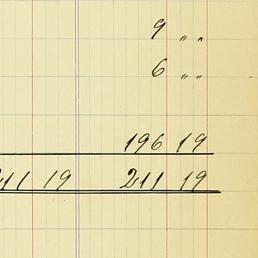 9 „ „
6 „ „
196 19
211 19 211 19